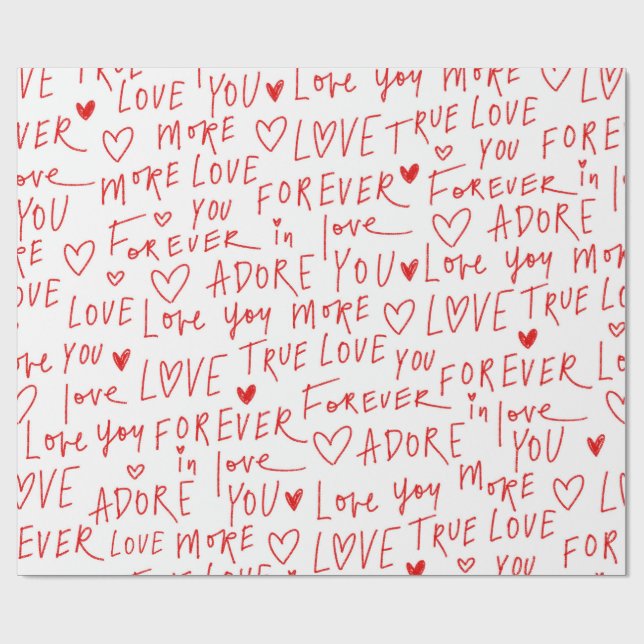 VE TRUE LOVE YOU Love you MORE LO
EVER MORE LOVE TRUE LOVE
ove MORE LOVE FOREVER YOU FOREVER
YOU FOREVER YOU in love FOREVER in l
RE ADORE YOU Love you ADORE MO
OVE LOVE Love you MORE LOVE TRUE LOVE YOU
ove YOU love LOVE TRUE LOVE YOU FOREVER Lo
Love you FOREVER FOREVER in love
LOVE ADORE in love ADORE YOU
YOU Love you MORE L
EVER LOVE MORE LOVE TRUE LOVE YOU FOR